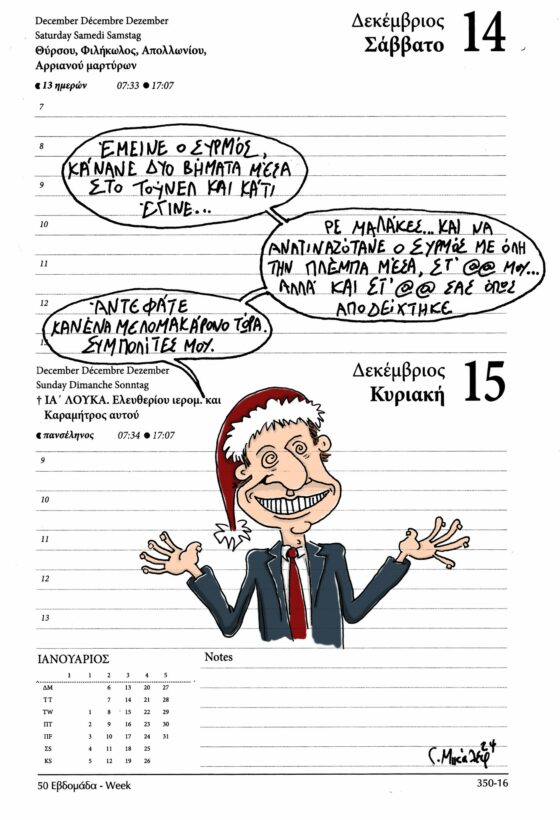 December Décembre Dezember
Saturday Samedi Samstag
Θύρσου, Φιλήκωλος, Απολλωνίου,
Αρριανού μαρτύρων
13 ημερών 07:33 ● 17:07
Δεκέμβριος
Σάββατο
14
7
8
9
10
11
12
13
ΈΜΕΙΝΕ Ο ΣΥΡΜΌΣ,
ΚΆΝΑΝΕ ΔΥΟ ΒΉΜΑΤΑ ΜΈΣΑ
ΣΤΟ ΤΟΎΝΕΛ ΚΑΙ ΚΆΤΙ
ΈΓΙΝΕ...
ΡΕ ΜΑΛΆΚΕΣ... ΚΑΙ ΝΑ
ΑΝΑΤΙΝΑΖΌΤΑΝΕ Ο ΣΥΡΜΌΣ ΜΕ ΌΛΗ
ΤΗΝ ΠΛΈΜΠΑ ΜΈΣΑ, ΣΤ' @@ ΜΟΥ...
ΑΛΛΆ ΚΑΙ ΣΤ' @@ ΣΑΣ ΌΠΩΣ
ΑΠΟΔΕΊΧΤΗΚΕ
ΆΝΤΕ ΦΆΤΕ
ΚΑΝΈΝΑ ΜΕΛΟΜΑΚΆΡΟΝΟ ΤΏΡΑ.
ΣΥΜΠΟΛΊΤΕΣ ΜΟΥ.
December Décembre Dezember
Sunday Dimanche Sonntag
† ΙΑ΄ ΛΟΥΚΑ. Ελευθερίου ιερομ. και
Καραμήτρος αυτού
πανσέληνος 07:34 ● 17:07
Δεκέμβριος
Κυριακή
15
9
10
11
12
13
ΙΑΝΟΥΑΡΙΟΣ
1 1 2 3 4 5
ΔΜ 6 13 20 27
ΤΤ 7 14 21 28
TW 1 8 15 22 29
ΠΤ 2 9 16 23 30
ΠF 3 10 17 24 31
ΣS 4 11 18 25
ΚS 5 12 19 26
Notes
24
50 Εβδομάδα - Week
350-16